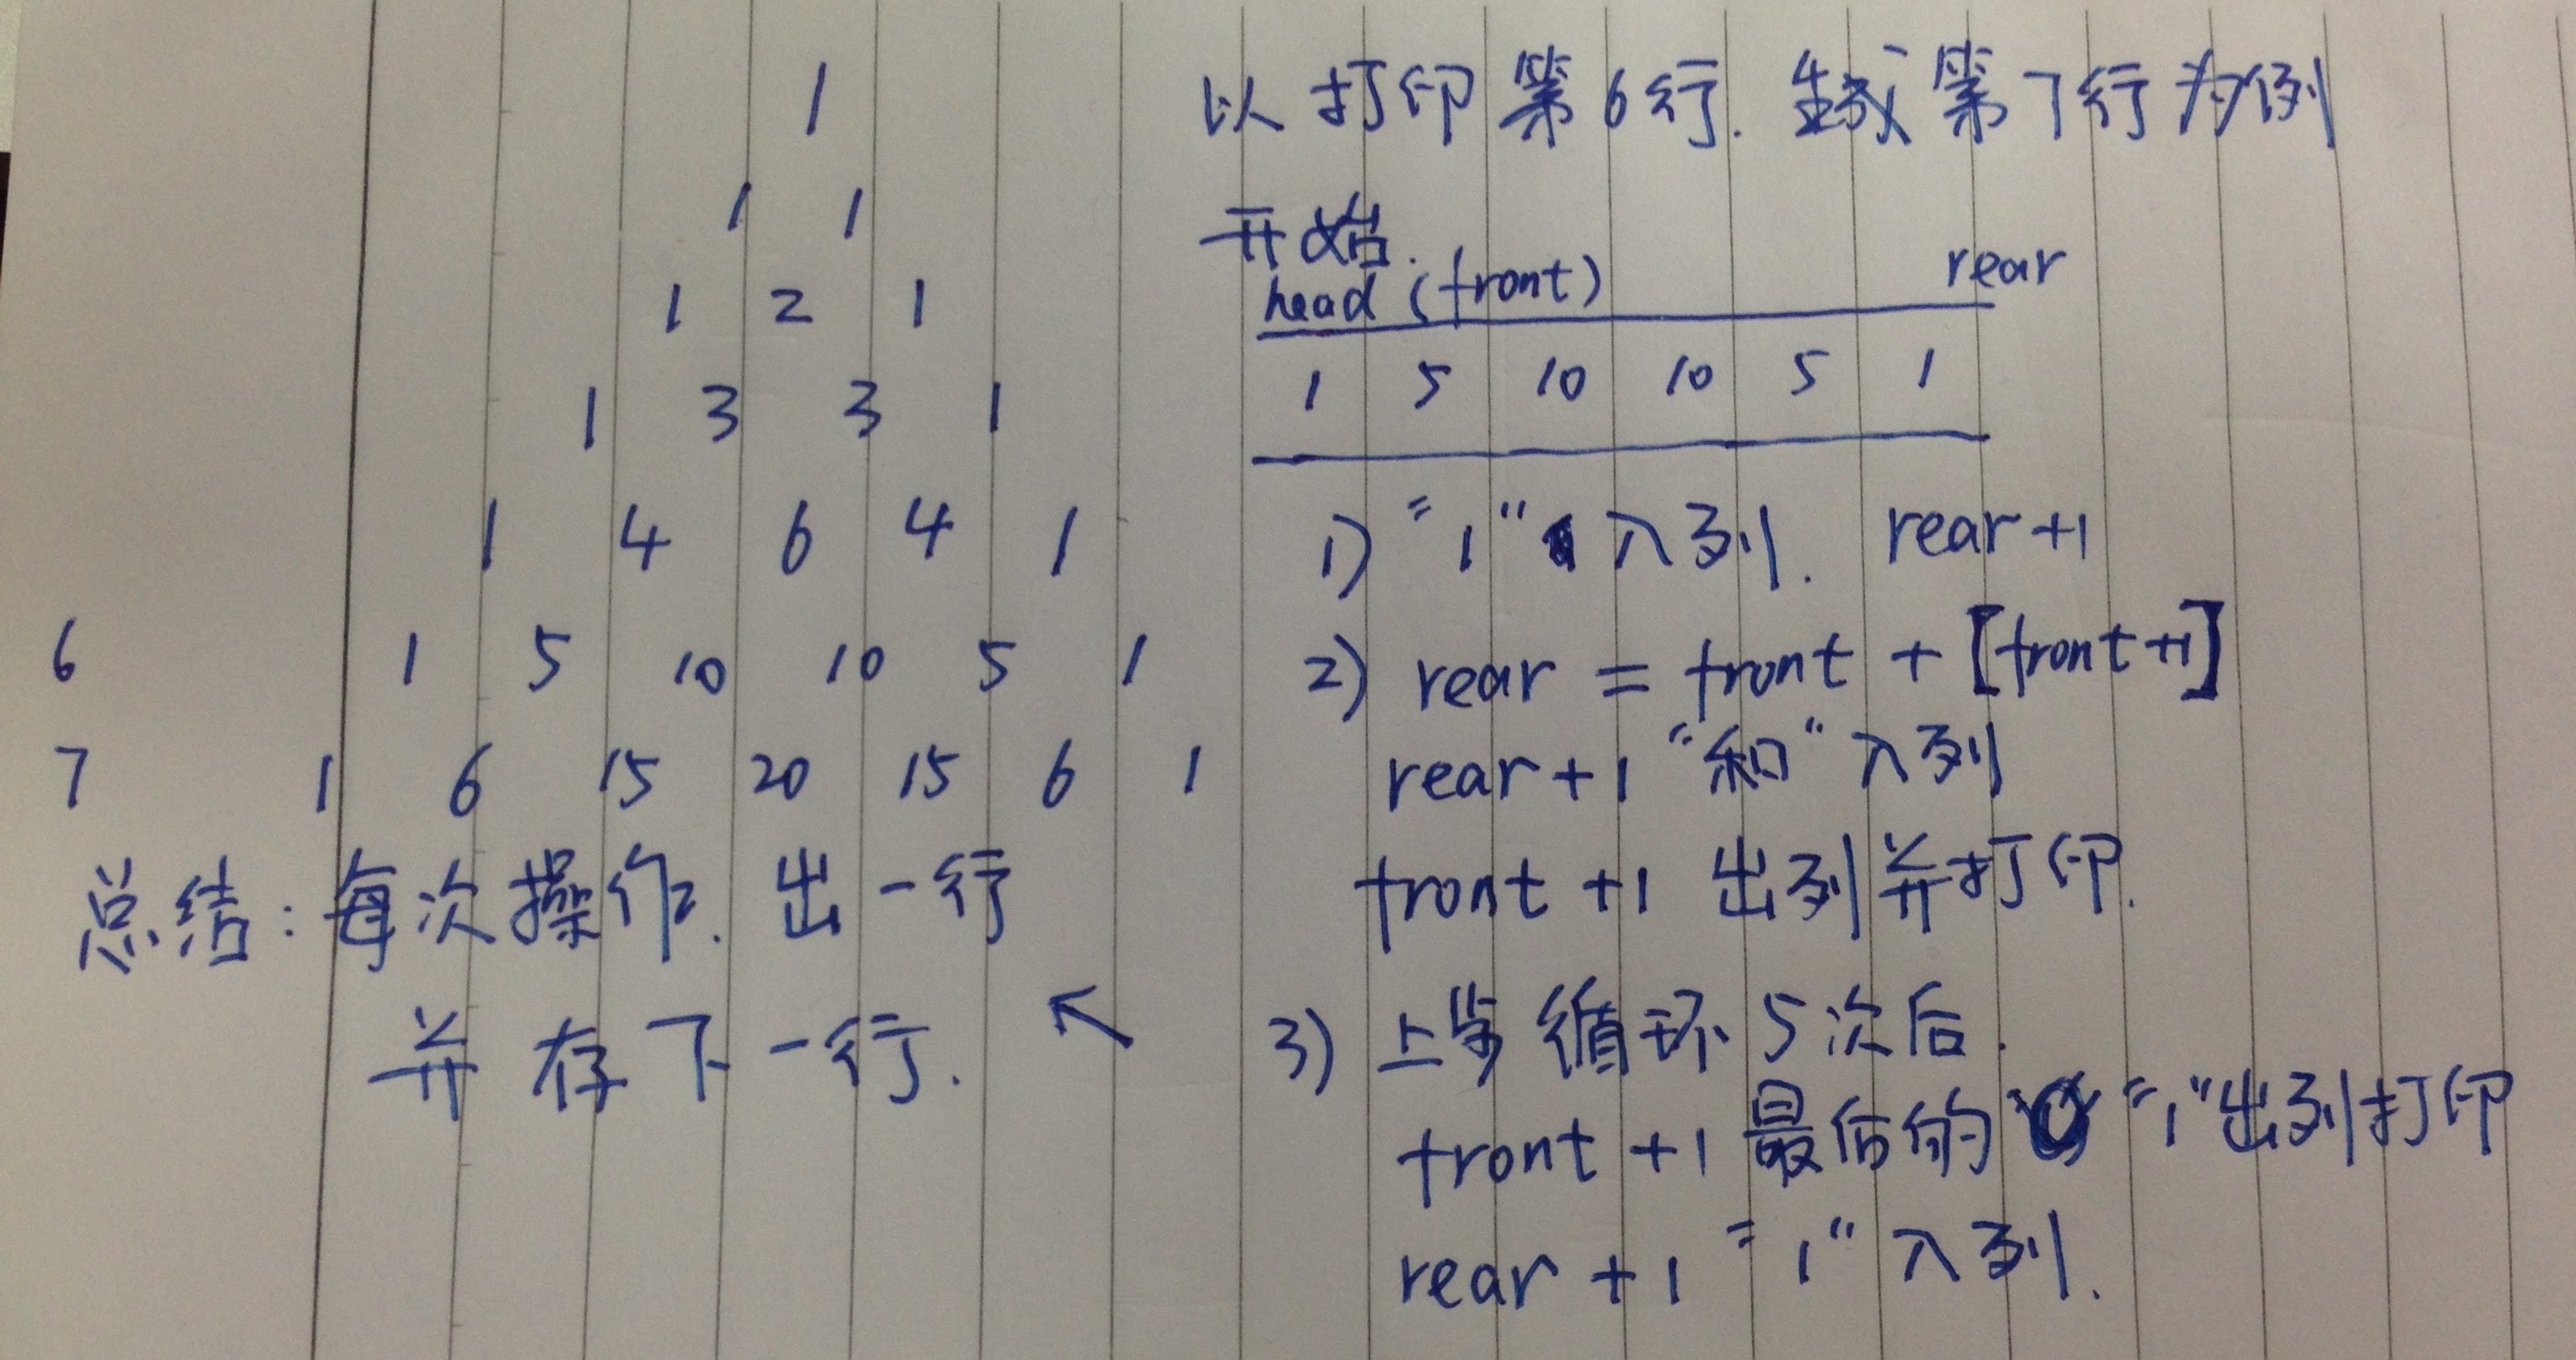 1
1 1
1 2 1
1 3 3 1
1 4 6 4 1
6 1 5 10 10 5 1
7 1 6 15 20 15 6 1
总结:每次操作.出一行
并存下一行.
以打印第6行.生成第7行为例
开始.
head (front) rear
1 5 10 10 5 1
1) "1" 入列. rear +1
2) rear = front + [front+1]
rear+1 "和" 入列
front +1 出列并打印.
3) 上步循环5次后.
front +1 最后的 "1" 出列打印
rear +1 "1" 入列.